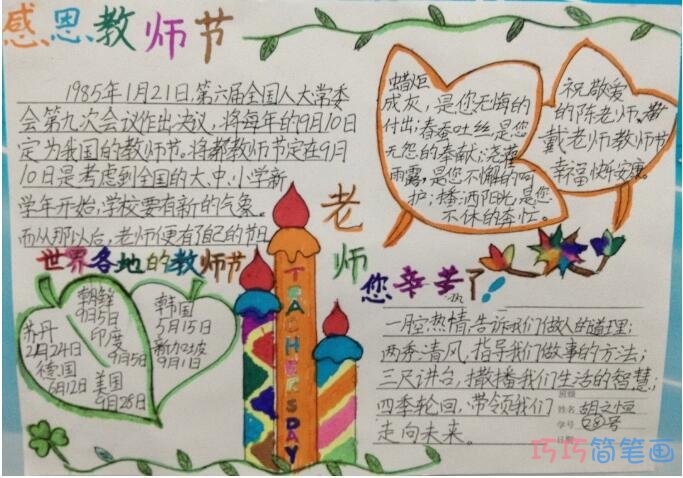 感恩教师节
1985年1月21日,第六届全国人大常委
会第九次会议作出决议,将每年的9月10日
定为我国的教师节。将都教师节定在9月
10日是考虑到全国的大、中、小学新
学年开始,学校要有新的气象。
而从那以后,老师便有了自己的节日
蜡炬
成灰,是您无悔的
付出;春蚕吐丝是您
无怨的奉献;浇灌
雨露,是您不懈的呵
护;播洒阳光是您
不休的责任。
祝敬爱
的陈老师、
戴老师教师节
幸福快乐安康。
世界各地的教师节
苏丹
2月24日
德国
6月12日
朝鲜
9月5日
印度
9月5日
美国
9月28日
韩国
5月15日
新加坡
9月1日
TEACHERSDAY
老师
您辛苦了!
一月空热情,告诉我们做人的道理;
两季清风,指导我们做事的方法;
三尺讲台,播我们生活的智慧;
四季轮回,带领我们
走向未来。
班级
姓名 胡文恒
学号 28号
日期
巧巧简笔画